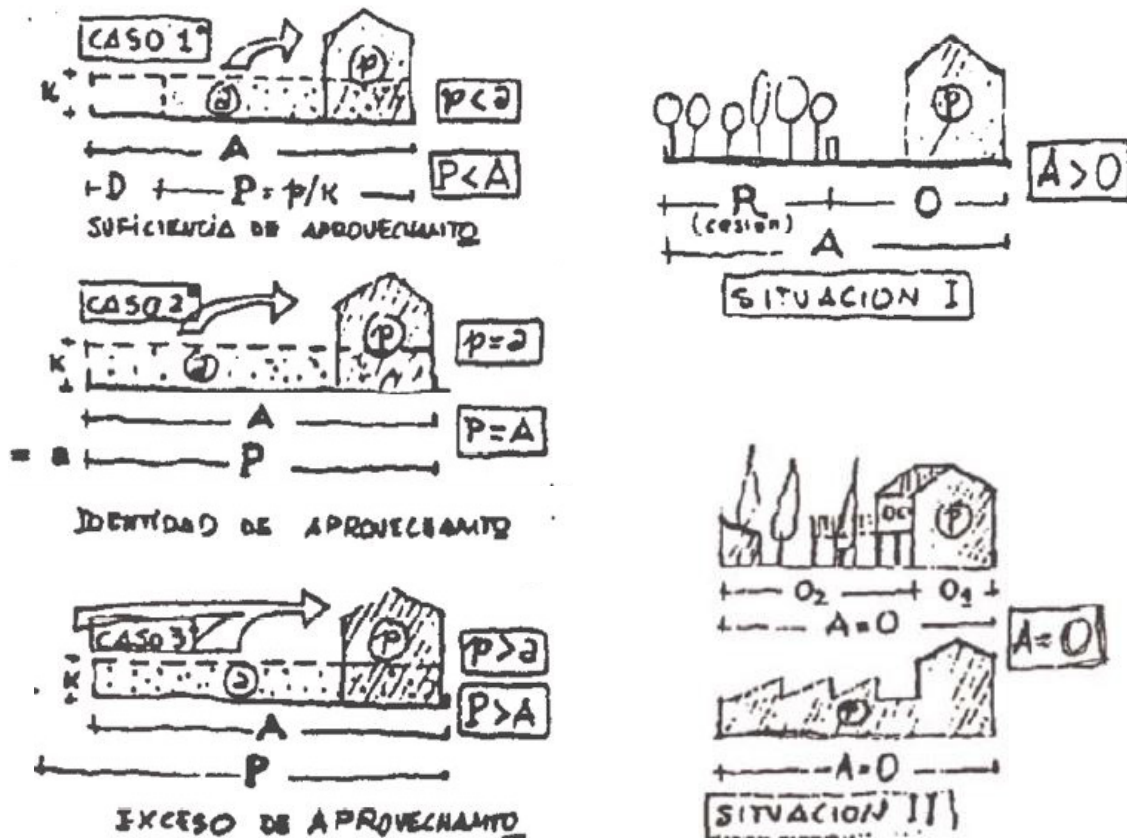 CASO 1º
p
K
a
p<a
A
P<A
D P = p/K
SUFICIENCIA DE APROVECHAMTO
CASO 2º
p
p=a
K
a
A
P=A
= a P
IDENTIDAD DE APROVECHAMTO
CASO 3º
p
p>a
K
a
P>A
A
P
EXCESO DE APROVECHAMTO
p
A>O
R O
(cesion)
A
SITUACION I
p
O2 O1
A=O
A=O
p
A=O
SITUACION II